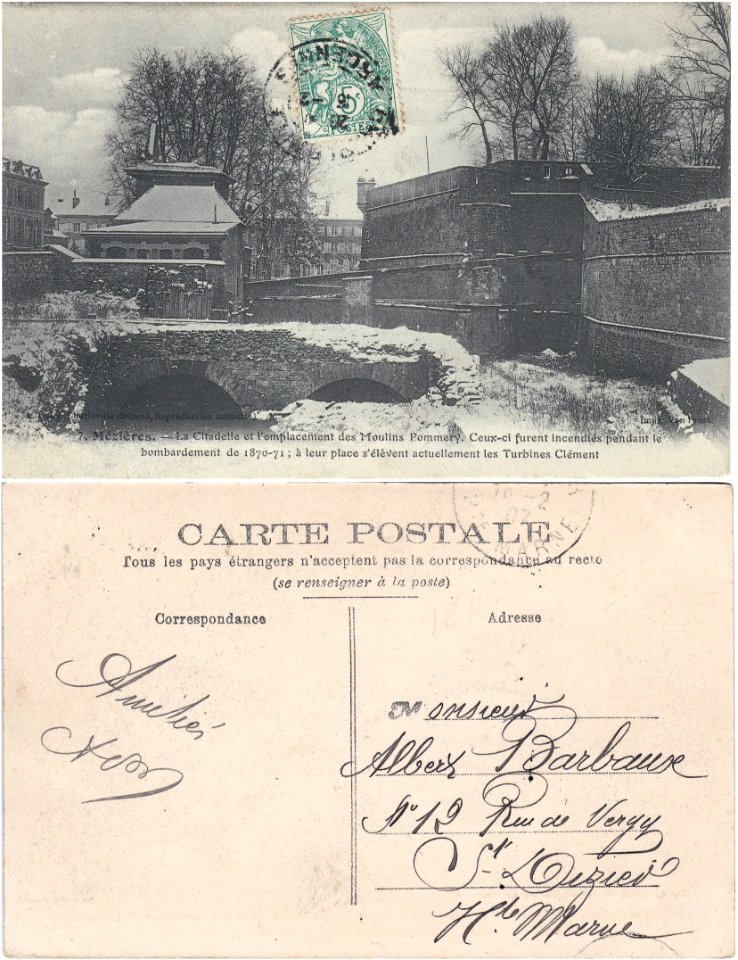 5
POSTES
7. Mézières. — La Citadelle et l'emplacement des Moulins Pommery. Ceux-ci furent incendiés pendant le
bombardement de 1870-71 ; à leur place s'élèvent actuellement les Turbines Clément
CARTE POSTALE
Tous les pays étrangers n'acceptent pas la correspondance au recto
(se renseigner à la poste)
MARNE
Correspondance
Adresse
Amitiés
Monsieur
Albert Barbaux
N° 12 Rue de Vergy
St Dizier
Hte Marne